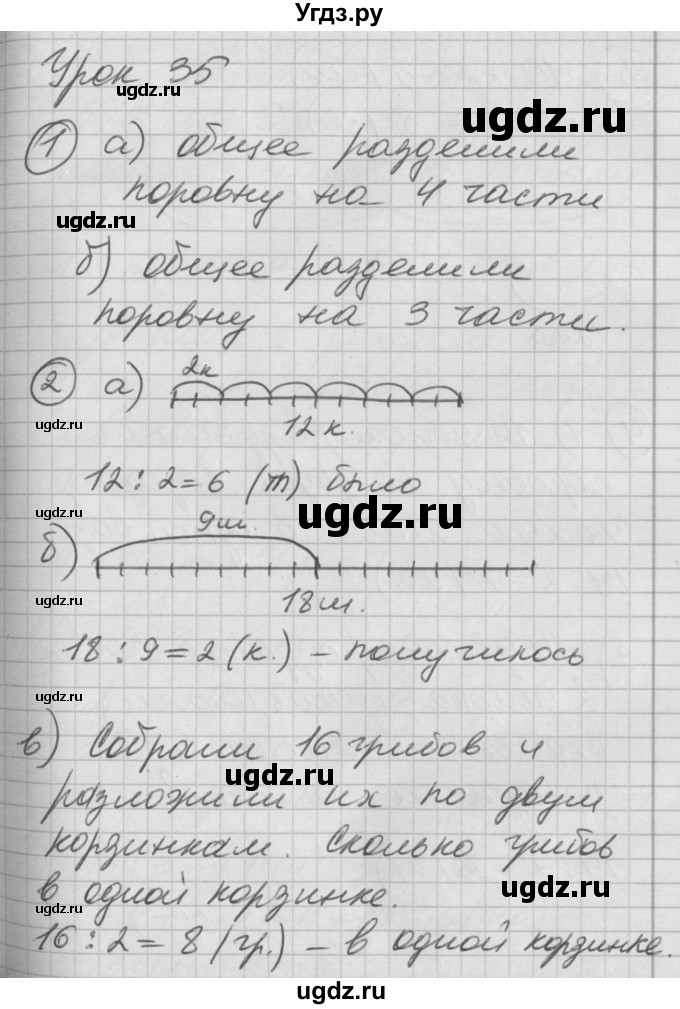 Угдз.ру
Урок 35
ugdz.ru
ugdz.ru
① а) общее разделили
поровну на 4 части
ugdz.ru
б) общее разделили
поровну на 3 части.
ugdz.ru
② а) 2к
12 к.
ugdz.ru
12 : 2 = 6 (т) было
ugdz.ru
ugdz.ru
б) 9 ш.
18 ш.
ugdz.ru
18 : 9 = 2 (к.) – получилось
ugdz.ru
в) Собрали 16 грибов и
ugdz.ru
разложили их по двум
ugdz.ru
корзинкам. Сколько грибов
ugdz.ru
в одной корзинке.
ugdz.ru
16 : 2 = 8 (гр.) – в одной корзинке.
ugdz.ru